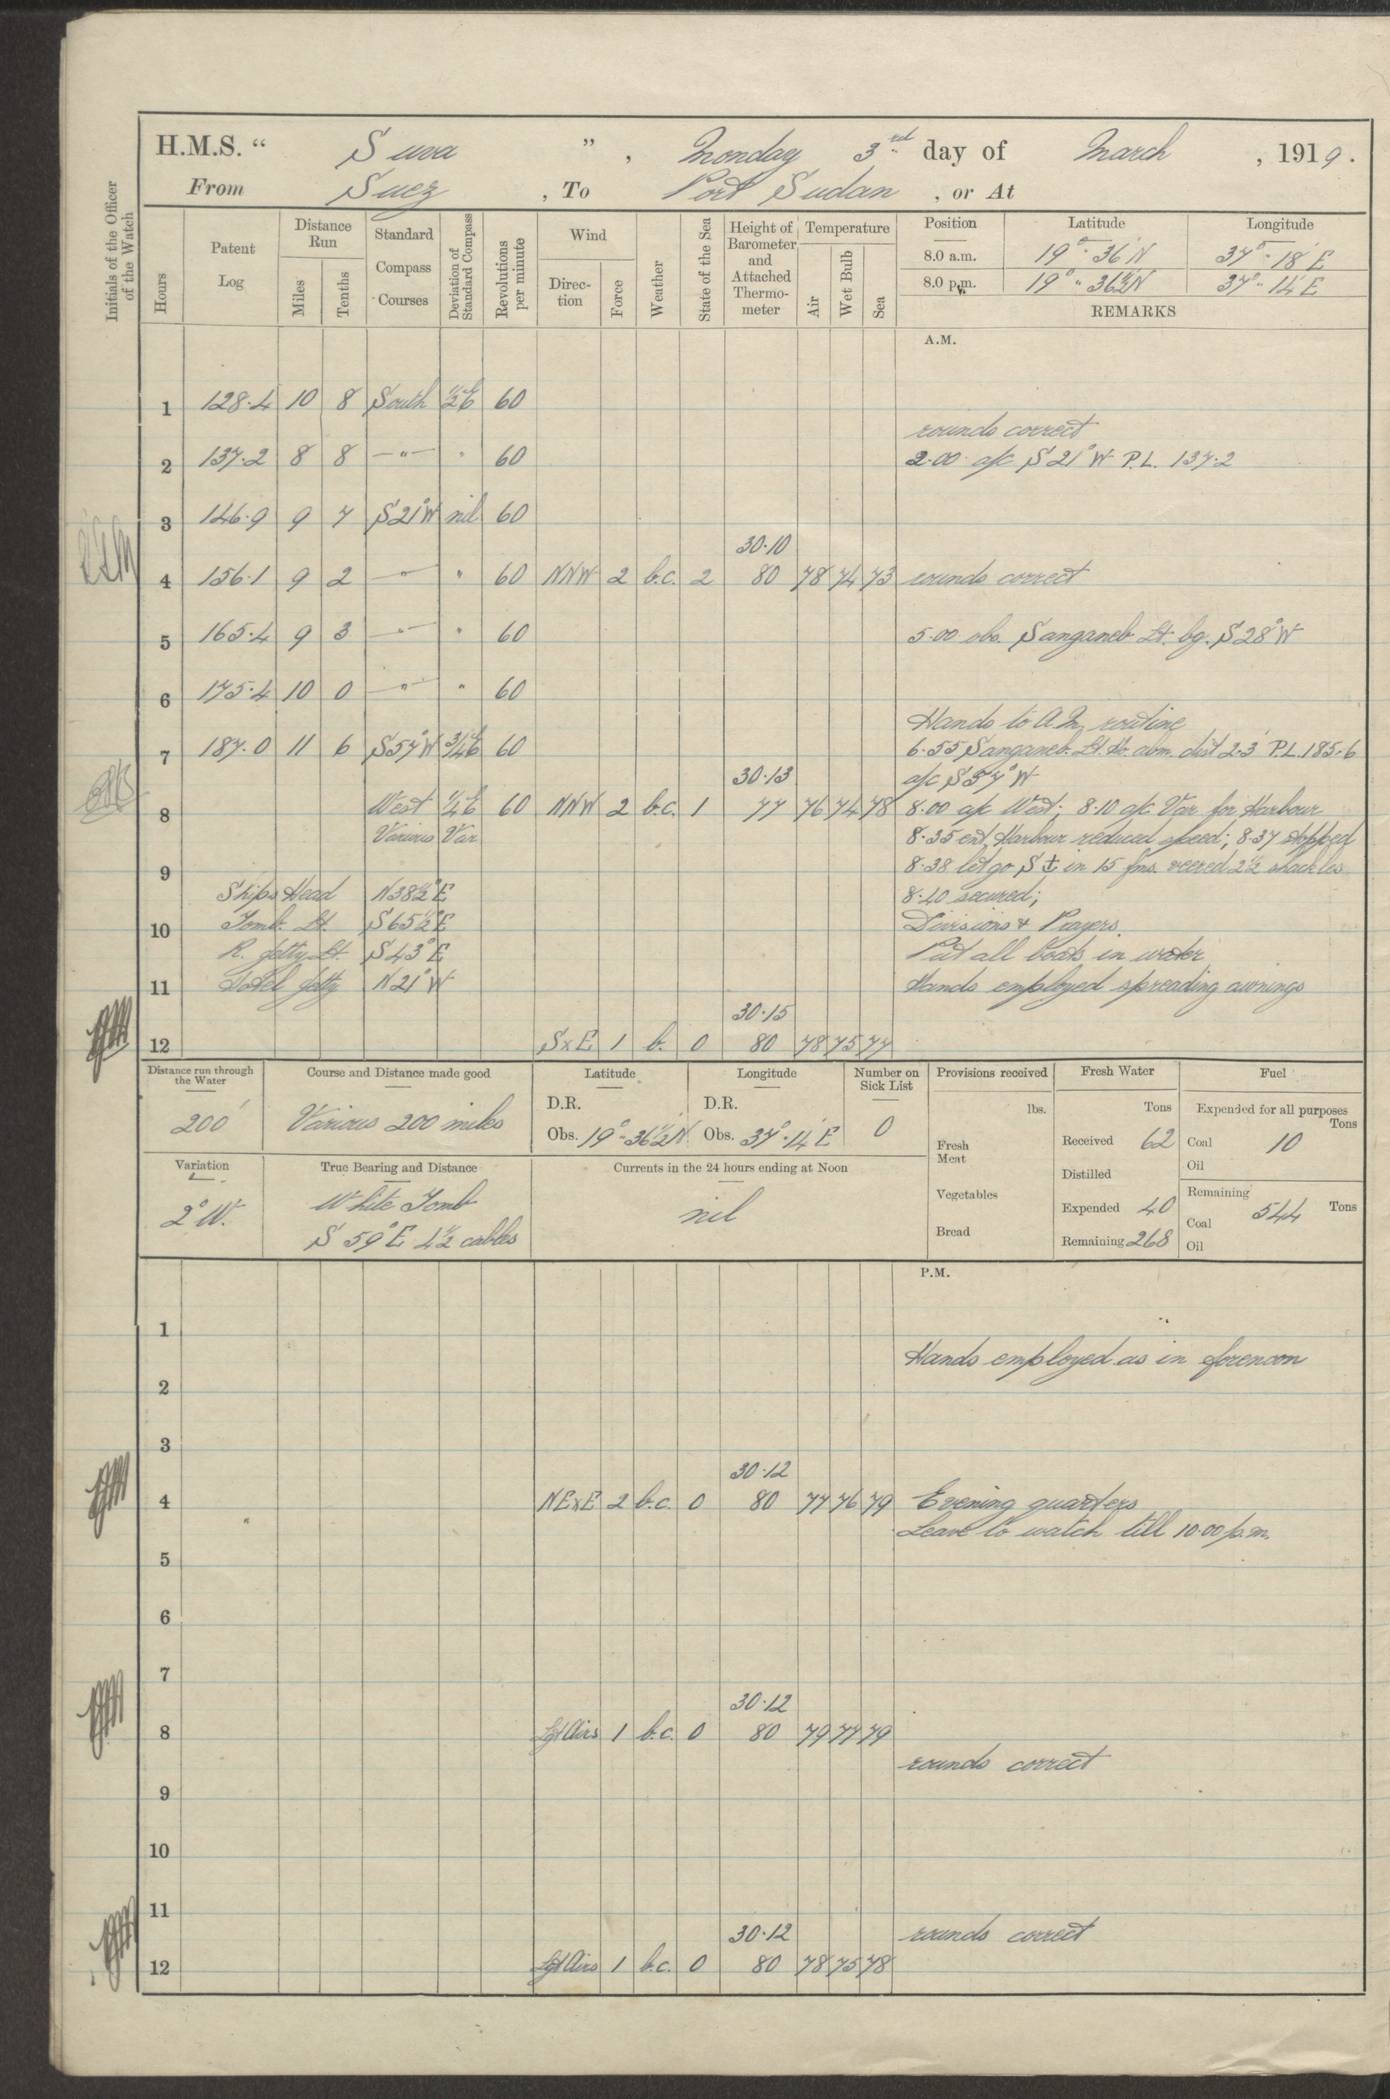 H.M.S. “ Suva ” , Monday 3rd day of March , 1919.
From Suez , To Port Sudan , or At
Initials of the Officer of the Watch
Hours
Patent Log
Distance Run
Miles
Tenths
Standard Compass Courses
Deviation of Standard Compass
Revolutions per minute
Wind
Direction
Force
Weather
State of the Sea
Height of Barometer and Attached Thermometer
Temperature
Air
Wet Bulb
Sea
Position Latitude Longitude
8.0 a.m. 19° 36' N 37° 18' E
8.0 p.m. 19° 36½ N 37° 14' E
REMARKS
A.M.
1 128.4 10 8 South ½E 60
rounds correct
2 137.2 8 8 —"— " 60 2.00 a/c S 21° W P.L. 137.2
3 146.9 9 7 S21°W nil 60
30.10
4 156.1 9 2 —"— " 60 NNW 2 b.c. 2 80 78 74 73 rounds correct
5 165.4 9 3 —"— " 60 5.00 obs. Sanganeb Lt. bg. S 28° W
6 175.4 10 0 —"— " 60
Hands to A.M. routine
7 187.0 11 6 S57°W ¾E 60 6.55 Sanganeb. Lt. Ho. abm. dist 2.3' P.L. 185.6
30.13 a/c S 57° W
8 West ¼E 60 NNW 2 b.c. 1 77 76 74 78 8.00 a/c West; 8.10 a/c Var for Harbour
Various Var 8.35 ent. Harbour reduced speed; 8.37 stopped
9 8.38 let go S ⚓ in 15 fms. veered 2½ shackles
Ships Head N38½°E 8.40 secured;
10 Tomb. Lt. S65½°E Divisions & Prayers.
R. Jetty Lt. S43°E Put all boats in water
11 Hotel Jetty N21°W Hands employed spreading awnings
30.15
12 SxE 1 b. 0 80 78 75 77
Distance run through the Water
200'
Course and Distance made good
Various 200 miles
Latitude
D.R.
Obs. 19° 36½' N
Longitude
D.R.
Obs. 37° 14' E
Number on Sick List
0
Variation
2° W.
True Bearing and Distance
White Tomb
S 59° E 4½ cables
Currents in the 24 hours ending at Noon
nil
Provisions received
lbs.
Fresh Meat
Vegetables
Bread
Fresh Water
Tons
Received 62
Distilled
Expended 40
Remaining 268
Fuel
Expended for all purposes
Tons
Coal 10
Oil
Remaining
Tons
Coal 544
Oil
P.M.
1
Hands employed as in forenoon
2
3
30.12
4 NExE 2 b.c. 0 80 77 76 79 Evening quarters
Leave to watch till 10.00 p.m.
5
6
7
30.12
8 Lgt Airs 1 b.c. 0 80 79 77 79
rounds correct
9
10
11
30.12 rounds correct
12 Lgt Airs 1 b.c. 0 80 78 75 78